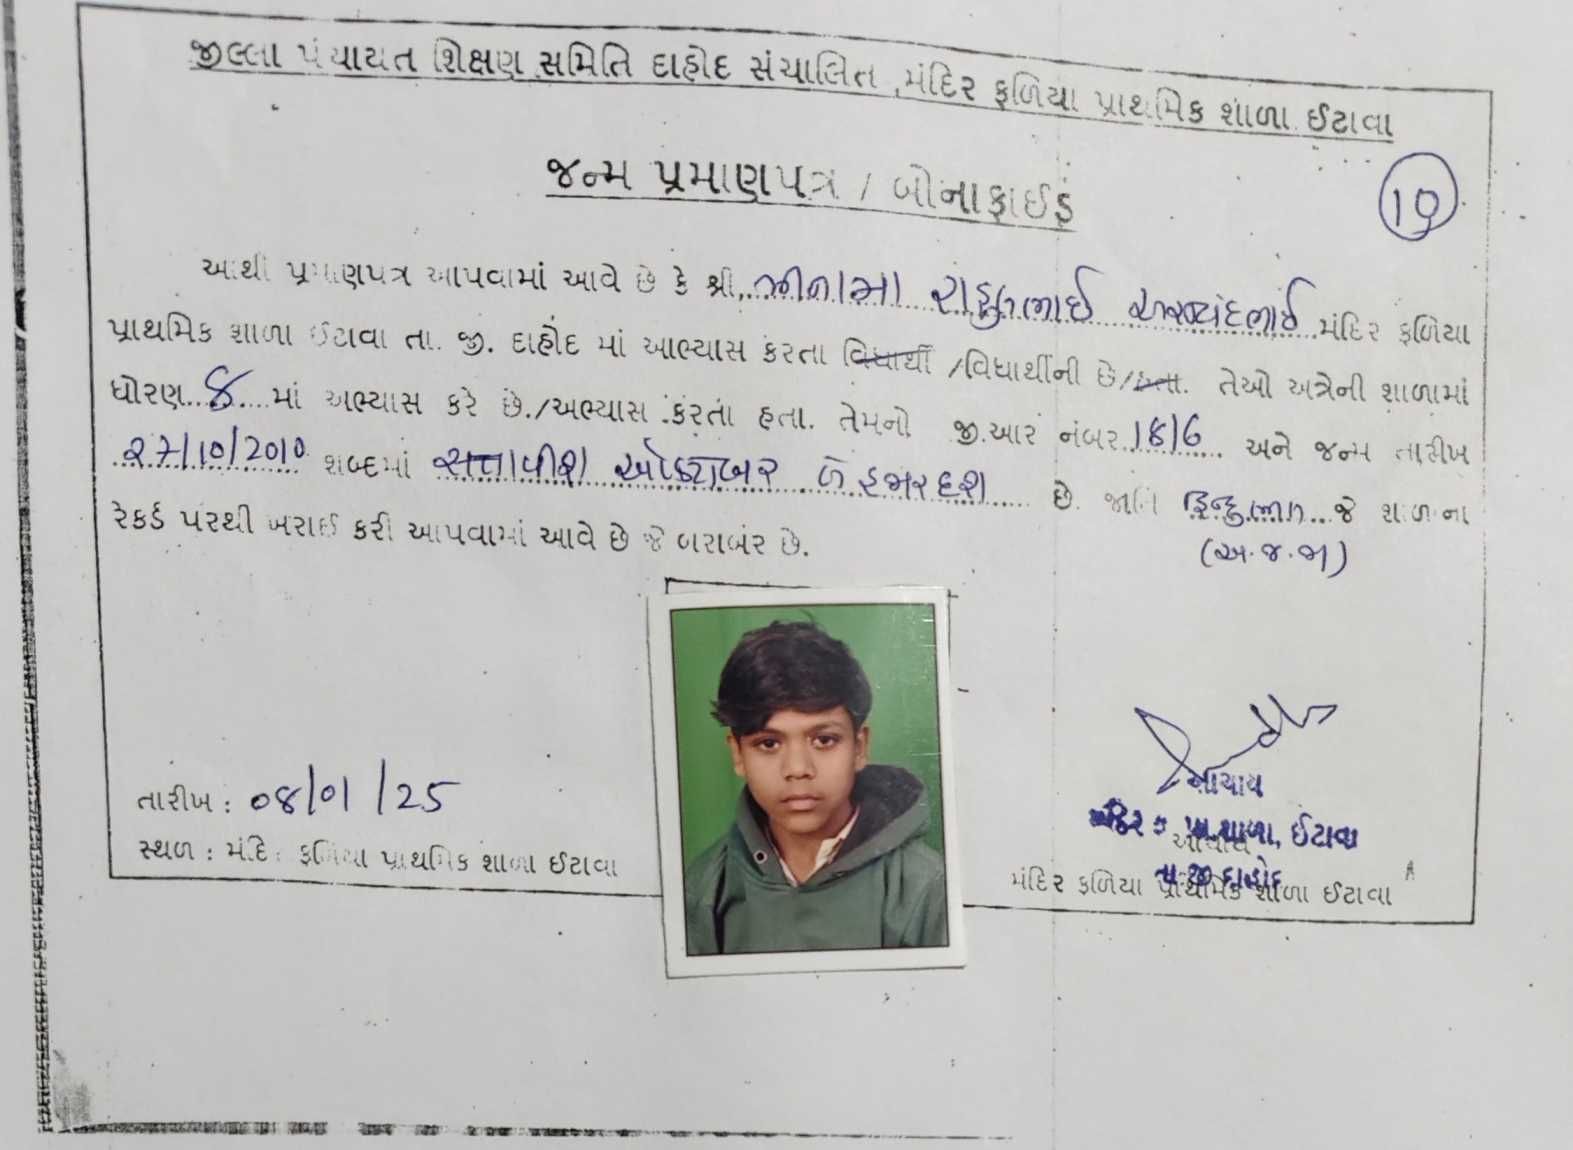 જીલ્લા પંચાયત શિક્ષણ સમિતિ દાહોદ સંચાલિત ,મંદિર ફળિયા પ્રાથમિક શાળા ઈટાવા
જન્મ પ્રમાણપત્ર / બોનાફાઈડ
10
આથી પ્રમાણપત્ર આપવામાં આવે છે કે શ્રી,.. મીનામા રાહુલભાઈ .. મંદિર ફળિયા
પ્રાથમિક શાળા ઈટાવા તા. જી. દાહોદ માં આભ્યાસ કરતા વિધાર્થી /વિધાર્થીની છે/હતા. તેઓ અત્રેની શાળામાં
ધોરણ..8....માં અભ્યાસ કરે છે./અભ્યાસ કરતા હતા. તેમનો જી.આર નંબર.1816.... અને જન્મ તારીખ
27/10/2010 શબ્દમાં સત્તાવીશ ઓક્ટોબર બે હજાર દશ .... છે. જાતિ હિન્દુ ભીલ...જે શાળાના
રેકર્ડ પરથી ખરાઈ કરી આપવામાં આવે છે જે બરાબર છે.
(અ.જ.જા)
તારીખ : 08/01/25
સ્થળ : મંદિર ફળિયા પ્રાથમિક શાળા ઈટાવા
આચાર્ય
મંદિર ફ. પ્રા.શાળા, ઈટાવા
તા.જી.દાહોદ
આચાર્ય
મંદિર ફળિયા પ્રાથમિક શાળા ઈટાવા